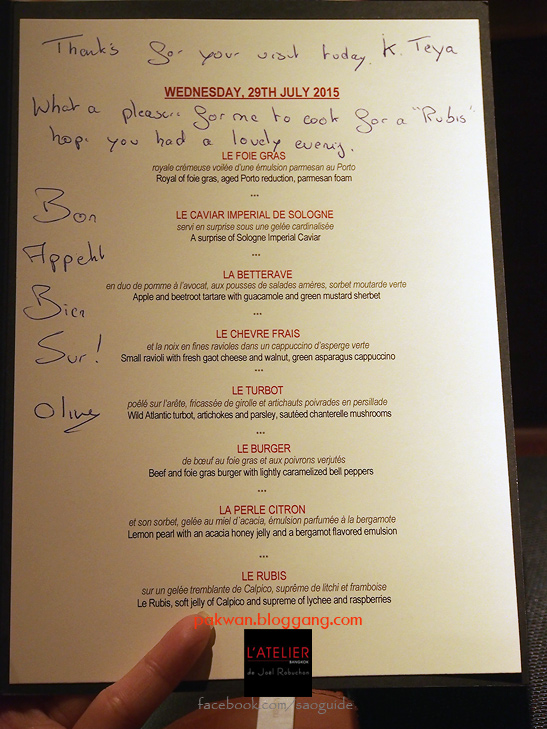 Thank's for your visit today. K. Teya
WEDNESDAY, 29TH JULY 2015
What a pleasure for me to cook for a "Rubis"
hope you had a lovely evening.
LE FOIE GRAS
royale crémeuse voilée d'une émulsion parmesan au Porto
Royal of foie gras, aged Porto reduction, parmesan foam
***
LE CAVIAR IMPERIAL DE SOLOGNE
servi en surprise sous une gelée cardinalisée
A surprise of Sologne Imperial Caviar
***
LA BETTERAVE
en duo de pomme à l'avocat, aux pousses de salades amères, sorbet moutarde verte
Apple and beetroot tartare with guacamole and green mustard sherbet
***
LE CHEVRE FRAIS
et la noix en fines ravioles dans un cappuccino d'asperge verte
Small ravioli with fresh gaot cheese and walnut, green asparagus cappuccino
***
LE TURBOT
poêlé sur l'arête, fricassée de girolle et artichauts poivrades en persillade
Wild Atlantic turbot, artichokes and parsley, sautéed chanterelle mushrooms
***
LE BURGER
de bœuf au foie gras et aux poivrons verjutés
Beef and foie gras burger with lightly caramelized bell peppers
***
LA PERLE CITRON
et son sorbet, gelée au miel d'acacia, émulsion parfumée à la bergamote
Lemon pearl with an acacia honey jelly and a bergamot flavored emulsion
***
LE RUBIS
sur un gelée tremblante de Calpico, suprême de litchi et framboise
Le Rubis, soft jelly of Calpico and supreme of lychee and raspberries
Bon
Appetit
Bien
Sur!
Olivier
pukwan.bloggang.com
L'ATELIER
BANGKOK
de Joël Robuchon
facebook.com/saoguide